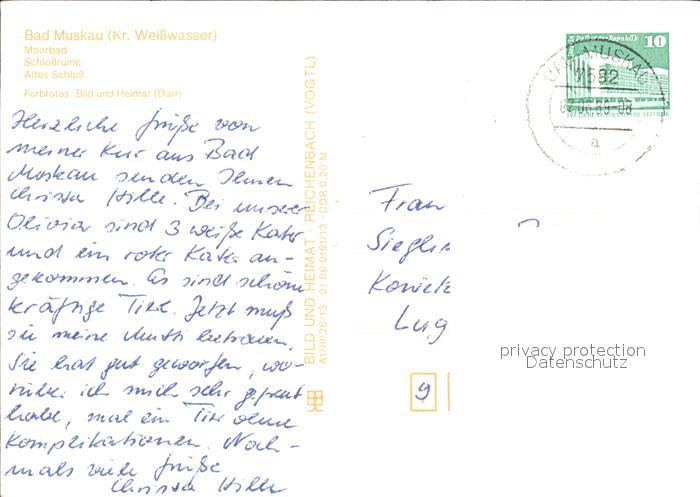 Bad Muskau (Kr. Weißwasser)
Moorbad
Schloßruine
Altes Schloß
Farbfotos: Bild und Heimat (Darr)
Herzliche Grüße von
meiner Kur aus Bad
Muskau senden Ihnen
Christa Hille. Bei unserer
Olivia sind 3 weiße Kater
und ein roter Kater an-
gekommen. Es sind schöne
kräftige Tiere. Jetzt muß
sie meine Mutti betreuen.
Sie hat gut geworfen, wo-
rüber ich mich sehr gefreut
habe, mal ein Tier ohne
Komplikationen. Noch-
mals viele Grüße
Christa Hille
BILD UND HEIMAT · REICHENBACH (VOGTL)
A1/III/26/13 01 06 0161/13 · DDR 0,20 M
Palast der Republik
10
DEUTSCHE DEMOKRATISCHE REPUBLIK
BAD MUSKAU
7582
a
Frau
Siegli
Lug
9
privacy protection
Datenschutz